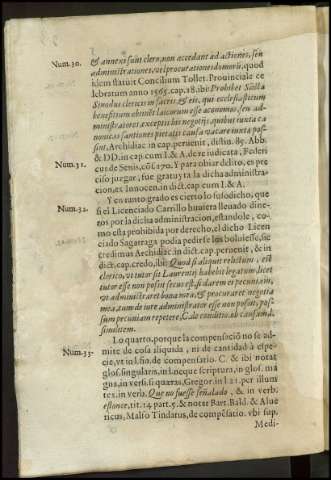 Num.30. & annexi sint clero, non accedant ad actiones, seu
administrationes, vel procurationes domorū, quod
idem statuit Concilium Tollet. Prouinciale ce
lebratum anno 1565. cap. 18. ibi: Prohibet Sācta
Synodus clericis in sacris, & eis, qui ecclesiasticum
beneficium obtinēt laicorum esse œconomos, seu ad-
ministratores exceptis his negotijs, quibus iuxta ca
nonicas sanctiones pietatis causa vacare iuxta pos-
sint, Archidiac. in cap. peruenit, distin. 85. Abb.
& DD. in cap. cum I. & A. de re iudicata, Federi
Num.31. cus de Senis, cōs. 270. Y para obiar delito, es pre-
ciso juzgar, fue gratuyta la dicha administra-
cion, ex Innocen. in dict. cap. cum I. & A.
Num.32. Y en tanto grado es cierto lo susodicho, que
si el Licenciado Carrillo huuiera lleuado dine-
ros por la dicha administracion, estandole, co-
mo esta prohibida por derecho, el dicho Licen
ciado Sagarraga podia pedirse los boluiesse, sic
credimus Archidiac. in dict. cap. peruenit, & in
dict. cap. credo, ibi: Quod si aliquit relictum, est
clerico, vt tutor sit Laurentij habebit legatum, licet
tutor esse non possit secus est si darem ei pecuniam,
vt administraret bona mea, & procuraret negotia
mea, cum de iure administrator esse non possit, pos-
sum pecuniam repetere, C. de conditio. ob causam, l.
similitem.
Num.33. Lo quarto, porque la compensaciō no se ad-
mite de cosa aliquida, ni de cantidad à espe-
cie, vt in l. fin. de compensatio. C. & ibi notat
glos. singularis, in l. neque scriptura, in glos. mā
gna, in vers. si quæras, Gregor. in l. 21. per illum
tex. in verb. Que no fuesse señalado, & in verb.
estonce, tit. 14 part. 5. & notat Bart. Bald. & Alue
rícus, Malso Tindarus, de compēsatio. vbi sup.
Medi-